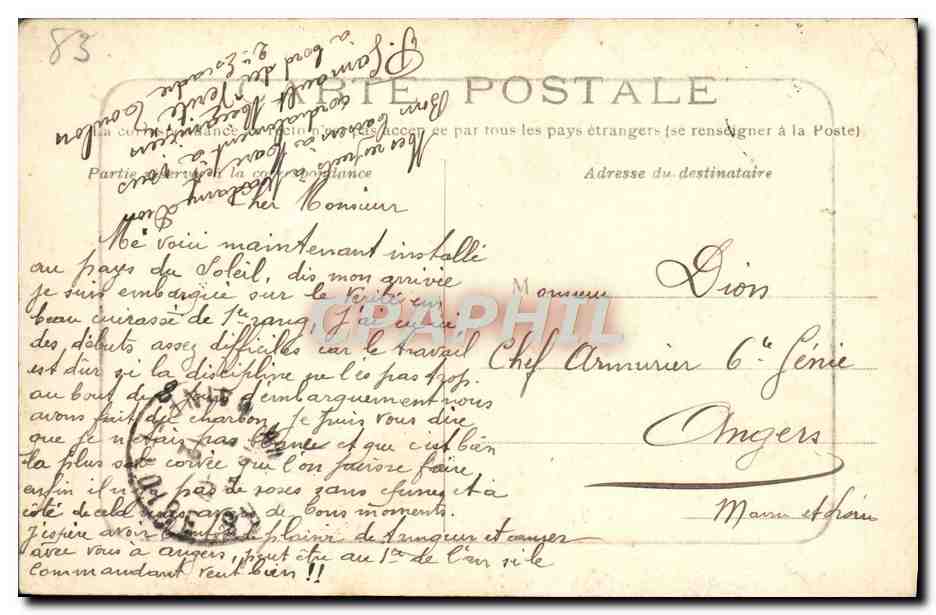 83
CARTE POSTALE
La correspondance au recto n'est pas acceptée par tous les pays étrangers (se renseigner à la Poste)
Partie réservée à la correspondance
Adresse du destinataire
Cher Monsieur
Me voici maintenant installé
au pays du Soleil, dis mon arrivée
je suis embarqué sur le Vérité un
beau cuirassé de 1er rang, j'ai eu ici
des débuts assez difficiles car le travail
est dûr si la discipline ne l'es pas trop.
au bout de jours d'embarquement nous
avons fait du charbon, je puis vous dire
que je n'étais pas et que c'est bien
la plus sale corvée que l'on puisse faire,
enfin il n'y a pas de roses sans épines et à
côté de cela nous avons de bons moments.
J'espère avoir le plaisir de et causer
avec vous à angers, peut être au 1er de l'an si le
Commandant veut bien !!
Mes respects à Madame Dion
Bons baisers à Marcel et à vous
cordialement
P. Hamault Mécanicien
à bord du Vérité
2e Escadre Toulon
Monsieur Dion
Chef Armurier 6e Génie
Angers
Maine et Loire
CPAPHIL